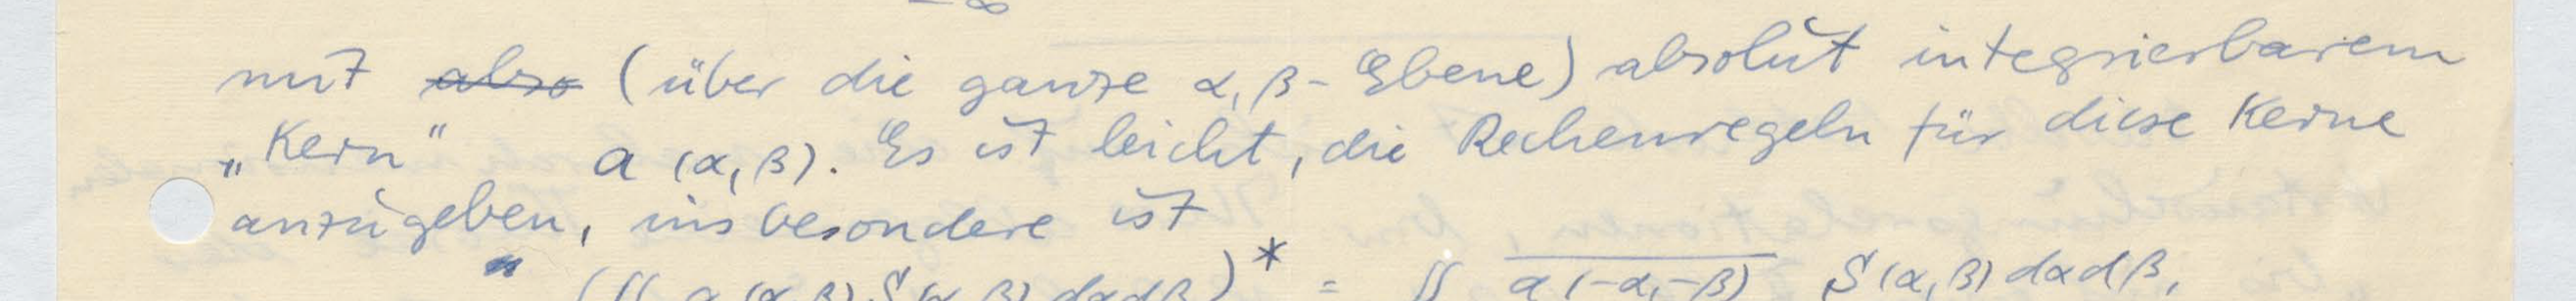 −∞
mit ~~abso~~ (über die ganze α, β - Ebene) absolut integrierbarem
„Kern" a (α, β). Es ist leicht, die Rechenregeln für diese Kerne
anzugeben, insbesondere ist
(∬ a (α, β) S(α, β) dαdβ)* = ∬ \overline{a(−α,−β)} S(α, β) dαdβ,